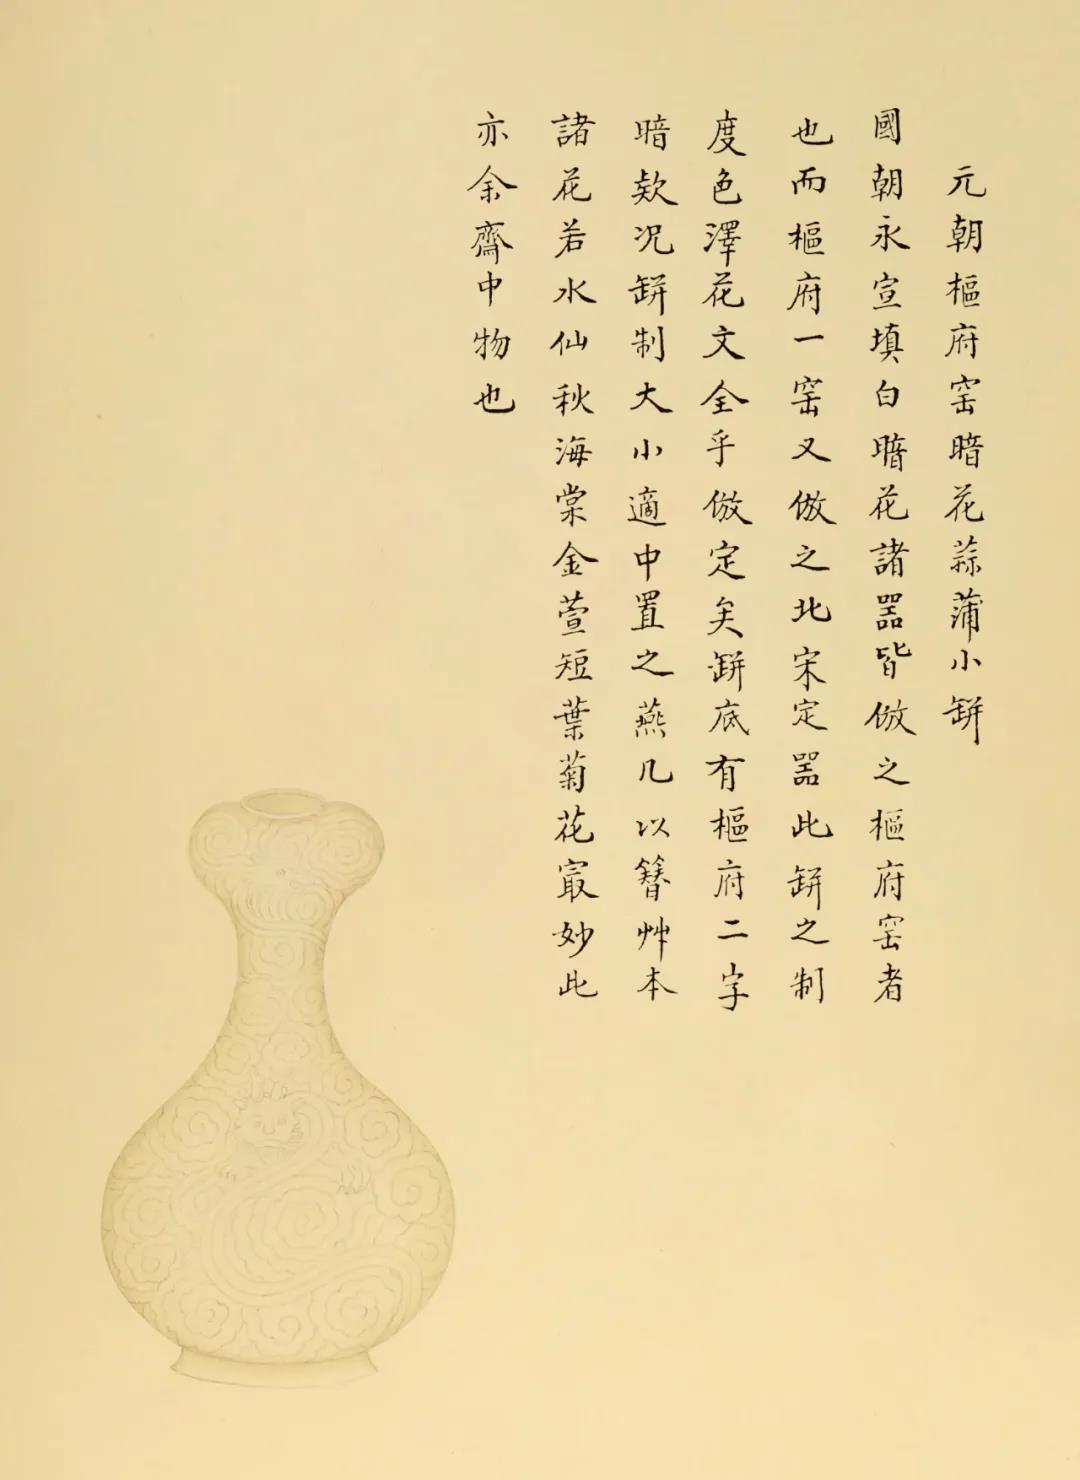 元朝樞府窑暗花蒜蒲小缾
國朝永宣填白暗花諸噐皆倣之樞府窑者
也而樞府一窑又倣之北宋定噐此缾之制
度色澤花文全乎倣定矣缾底有樞府二字
暗欵况缾制大小適中置之燕几以簪艸本
諸花若水仙秋海棠金萱短葉菊花㝡妙此
亦余齋中物也